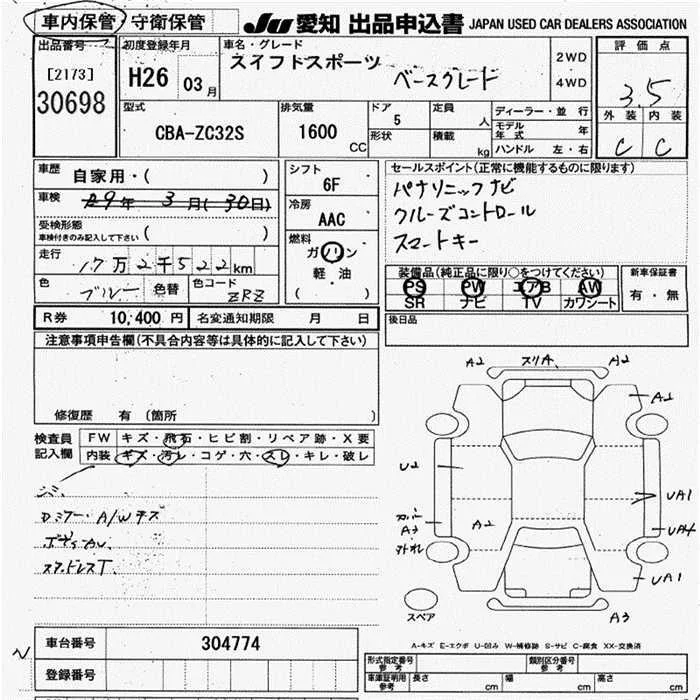 車内保管 守衛保管 JU 愛知 出品申込書 JAPAN USED CAR DEALERS ASSOCIATION
出品番号 初度登録年月 車名・グレード 評価点
[2173] H26 03月 スイフトスポーツ ベースグレード 2WD 4WD 3.5
30698
型式 排気量 ドア 定員 ディーラー・並行 外装 内装
CBA-ZC32S 1600 CC 5 人 モデル年式 年 C C
形状 積載 kg ハンドル 左・右
車歴 自家用・( ) シフト 6F セールスポイント(正常に機能するものに限ります)
車検 29年 3月(30日) 冷房 AAC パナソニックナビ
受検形態 ( ) クルーズコントロール
車検付きのみ記入して下さい 燃料 スマートキー
走行 17万2千522km ガソリン
軽・油
( )
装備品(純正品に限り○をつけてください) 新車保証書
色 ブルー 色替 色コード ZRZ PS PW エアB AW 有・無
SR ナビ TV カワシート
R券 10,400円 名変通知期限 月 日 後日品
注意事項申告欄(不具合内容等は具体的に記入して下さい)
修復歴 有 (箇所 )
A2 スリA A2
A1
検査員記入欄 FW キズ・飛石・ヒビ割・リペア跡・X要
内装 キズ・汚レ・コゲ・穴・スレ・キレ・破レ
U2
UA1
Dミラー・A/Wキズ
A3 A2 UA4
UA1
スペア A3
A-キズ E-エクボ U-凹み W-補修跡 S-サビ C-腐食 XX-交換済
車台番号 304774
登録番号
形式指定番号 参考 類別区分番号 参考
車庫証明用 参考 長さ cm 幅 cm 高さ cm